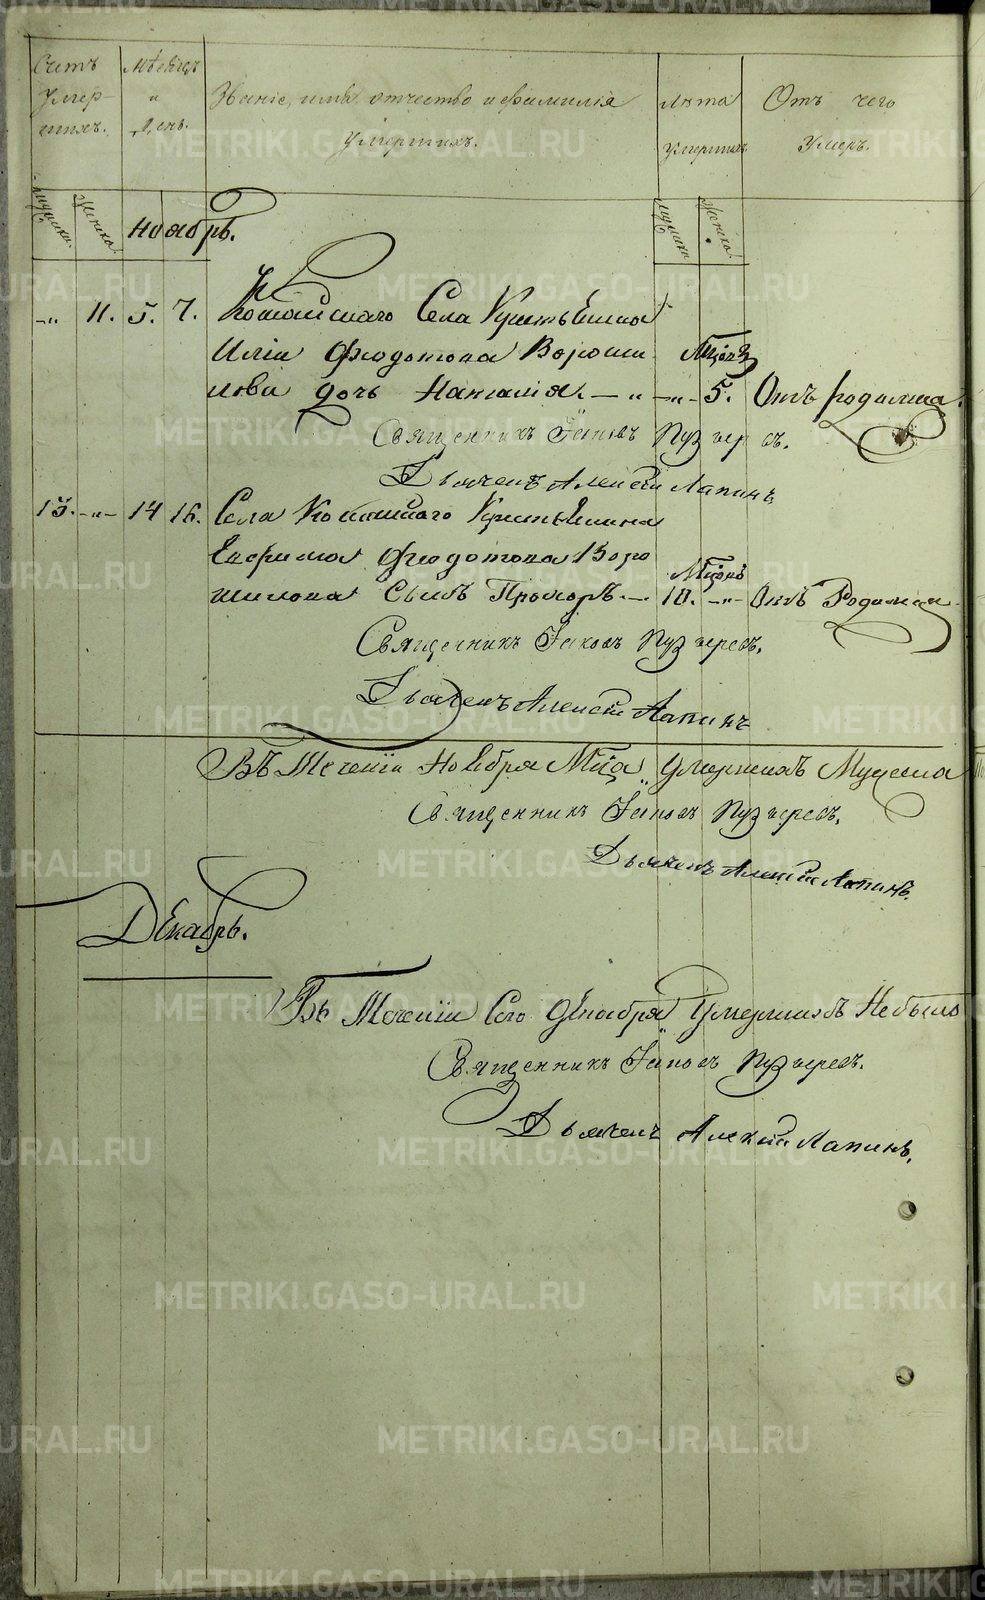 Счетъ Умер-шихъ.
Мѣсяцъ и День.
Званіе, имя, отчество и фамилія Умершихъ.
Лѣта Умершихъ
Отъ чего Умеръ.
Ноябрь.
„ 11. 5. 7. Кошайскаго Села Крестьянина
Иліи Федотова Вороши Мѣсяц
лова дочь Наталія. — „ — „ — 5. Отъ родимца.
Священникъ Іаковъ Пузыревъ.
Дьячекъ Алексѣй Лапинъ
13. — „ — 14 16. Села Кошайскаго Крестьянина
Евфима Федотова Воро
шилова Сынъ Прохоръ. — 10. — „ — Отъ Родимца
Священникъ Іаковъ Пузыревъ.
Дьячекъ Алексѣй Лапинъ
Въ Теченіи Ноября Мца Умершихъ Мужеска
Священникъ Іаковъ Пузыревъ.
Дьячекъ Алексѣй Лапинъ.
Декабрь.
Въ Теченіи Сего Декабря Умершихъ Небыло
Священникъ Іаковъ Пузыревъ.
Дьячекъ Алексѣй Лапинъ.
METRIKI.GASO-URAL.RU